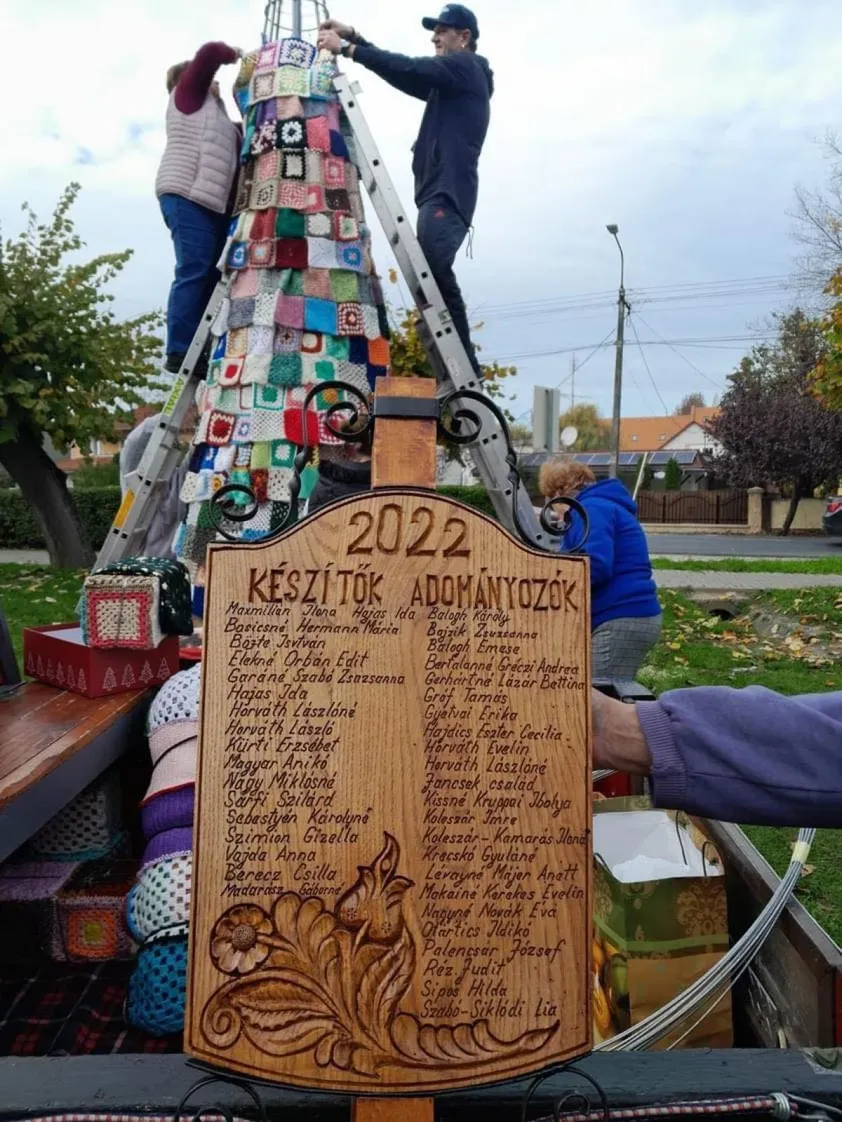 2022
KÉSZÍTŐK ADOMÁNYOZÓK
Maxmilián Ilona Hajas Ida
Basicsné Hermann Mária
Bőjte István
Elekné Orbán Edit
Garáné Szabó Zsuzsanna
Hajas Ida
Horváth Lászlóné
Horváth László
Kürti Erzsébet
Magyar Anikó
Nagy Miklósné
Sárfi Szilárd
Sebestyén Károlyné
Szimion Gizella
Vajda Anna
Berecz Csilla
Madarász Gáborné
Balogh Károly
Bajzik Zsuzsanna
Balogh Emese
Bertalanné Gréczi Andrea
Gerhártné Lázár Bettina
Gróf Tamás
Gyetvai Erika
Hajdics Eszter Cecilia
Horváth Evelin
Horváth Lászlóné
Jancsek család
Kissné Kruppai Ibolya
Koleszár Imre
Koleszár-Kamarás Ilona
Krecskó Gyuláné
Lévayné Májer Anett
Makainé Kerekes Evelin
Nagyné Novák Éva
Oláhtics Ildikó
Palencsár József
Réz Judit
Sipos Hilda
Szabó-Siklódi Lia